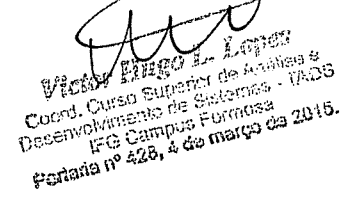 Victor Hugo L. Lopes
Coord. Curso Superior de Análise e
Desenvolvimento de Sistemas - TADS
IFG Campus Formosa
Portaria nº 428, 4 de março de 2015.